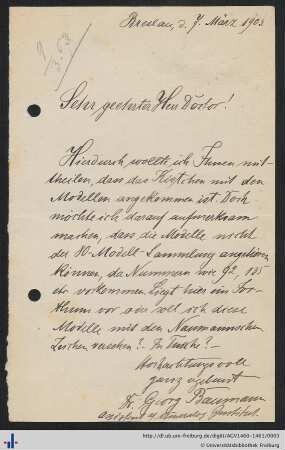 Breslau, d. 7. März 1903
Sehr geehrter Herr Doctor!
Hierdurch wollte ich Ihnen mit-
theilen, dass das Kistchen mit den
Modellen angekommen ist. Doch
möchte ich darauf aufmerksam
machen, dass die Modelle nicht
der 80-Modell-Sammlung angehören
können, da Nummern wie 92, 105
etc vorkommen. Liegt hier ein Irr-
thum vor oder soll ich diese
Modelle mit den Naumannschen
Zeichen versehen? In Tusche? –
Hochachtungsvoll
ganz ergebenst
Dr. Georg Baumann
Assistent
http://dl.ub.uni-freiburg.de/diglit/ACV1460-1461/0001
© Universitätsbibliothek Freiburg